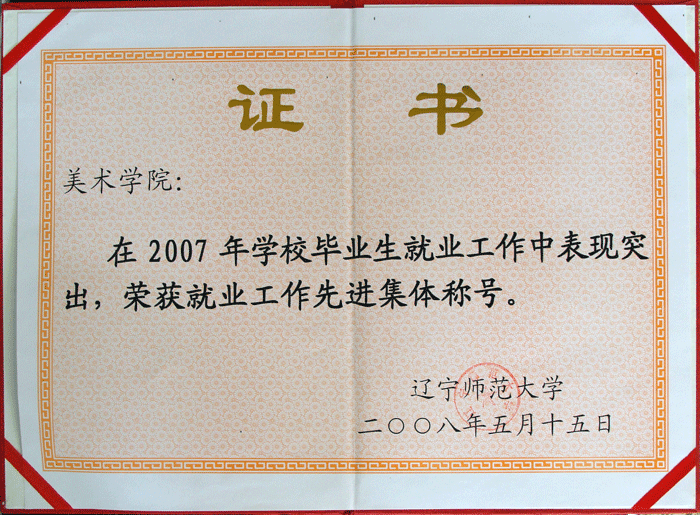 证书
美术学院：
在 2007 年学校毕业生就业工作中表现突
出，荣获就业工作先进集体称号。
辽宁师范大学
二〇〇八年五月十五日